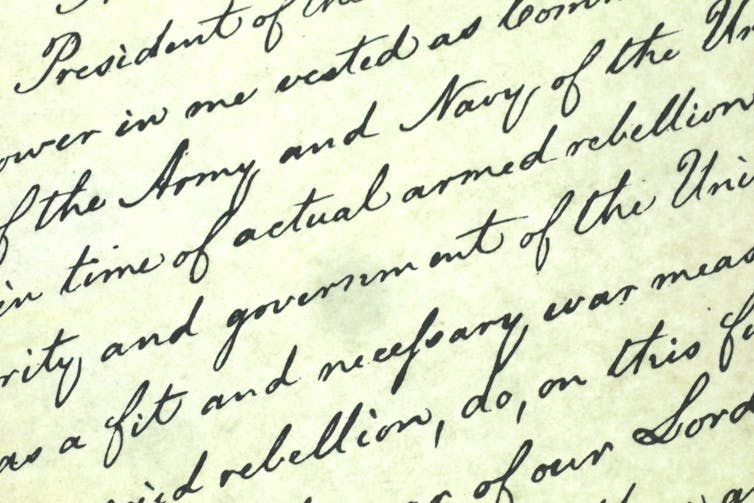 President of the
ower in me vested as Comm
f the Army and Navy of the Un
in time of actual armed rebellion
rity and government of the Uni
as a fit and neceſsary war meas
rebellion, do, on this fi
of our Lord